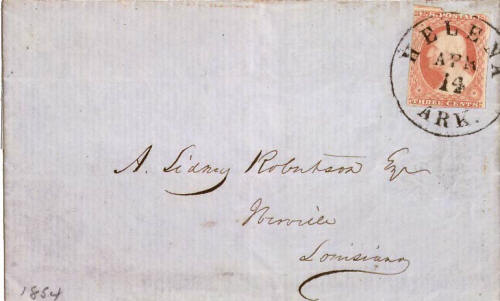 U.S. POSTAGE
HELENA
APR
14
ARK.
THREE CENTS
A. Sidney Robertson Esqr
Iberville
Louisiana
1854